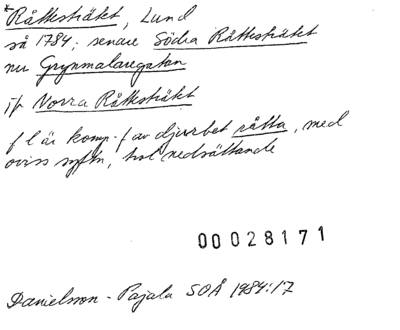 *Råttesträtet, Lund
så 1784; senare Södra Råttesträtet
nu Grynmalaregatan
jfr Norra Råttesträtet
f l är komp.-f av djurbet råtta, med
oviss syftn, trol nedsättande
00028171
Danielsson-Pajala SOÅ 1984:17